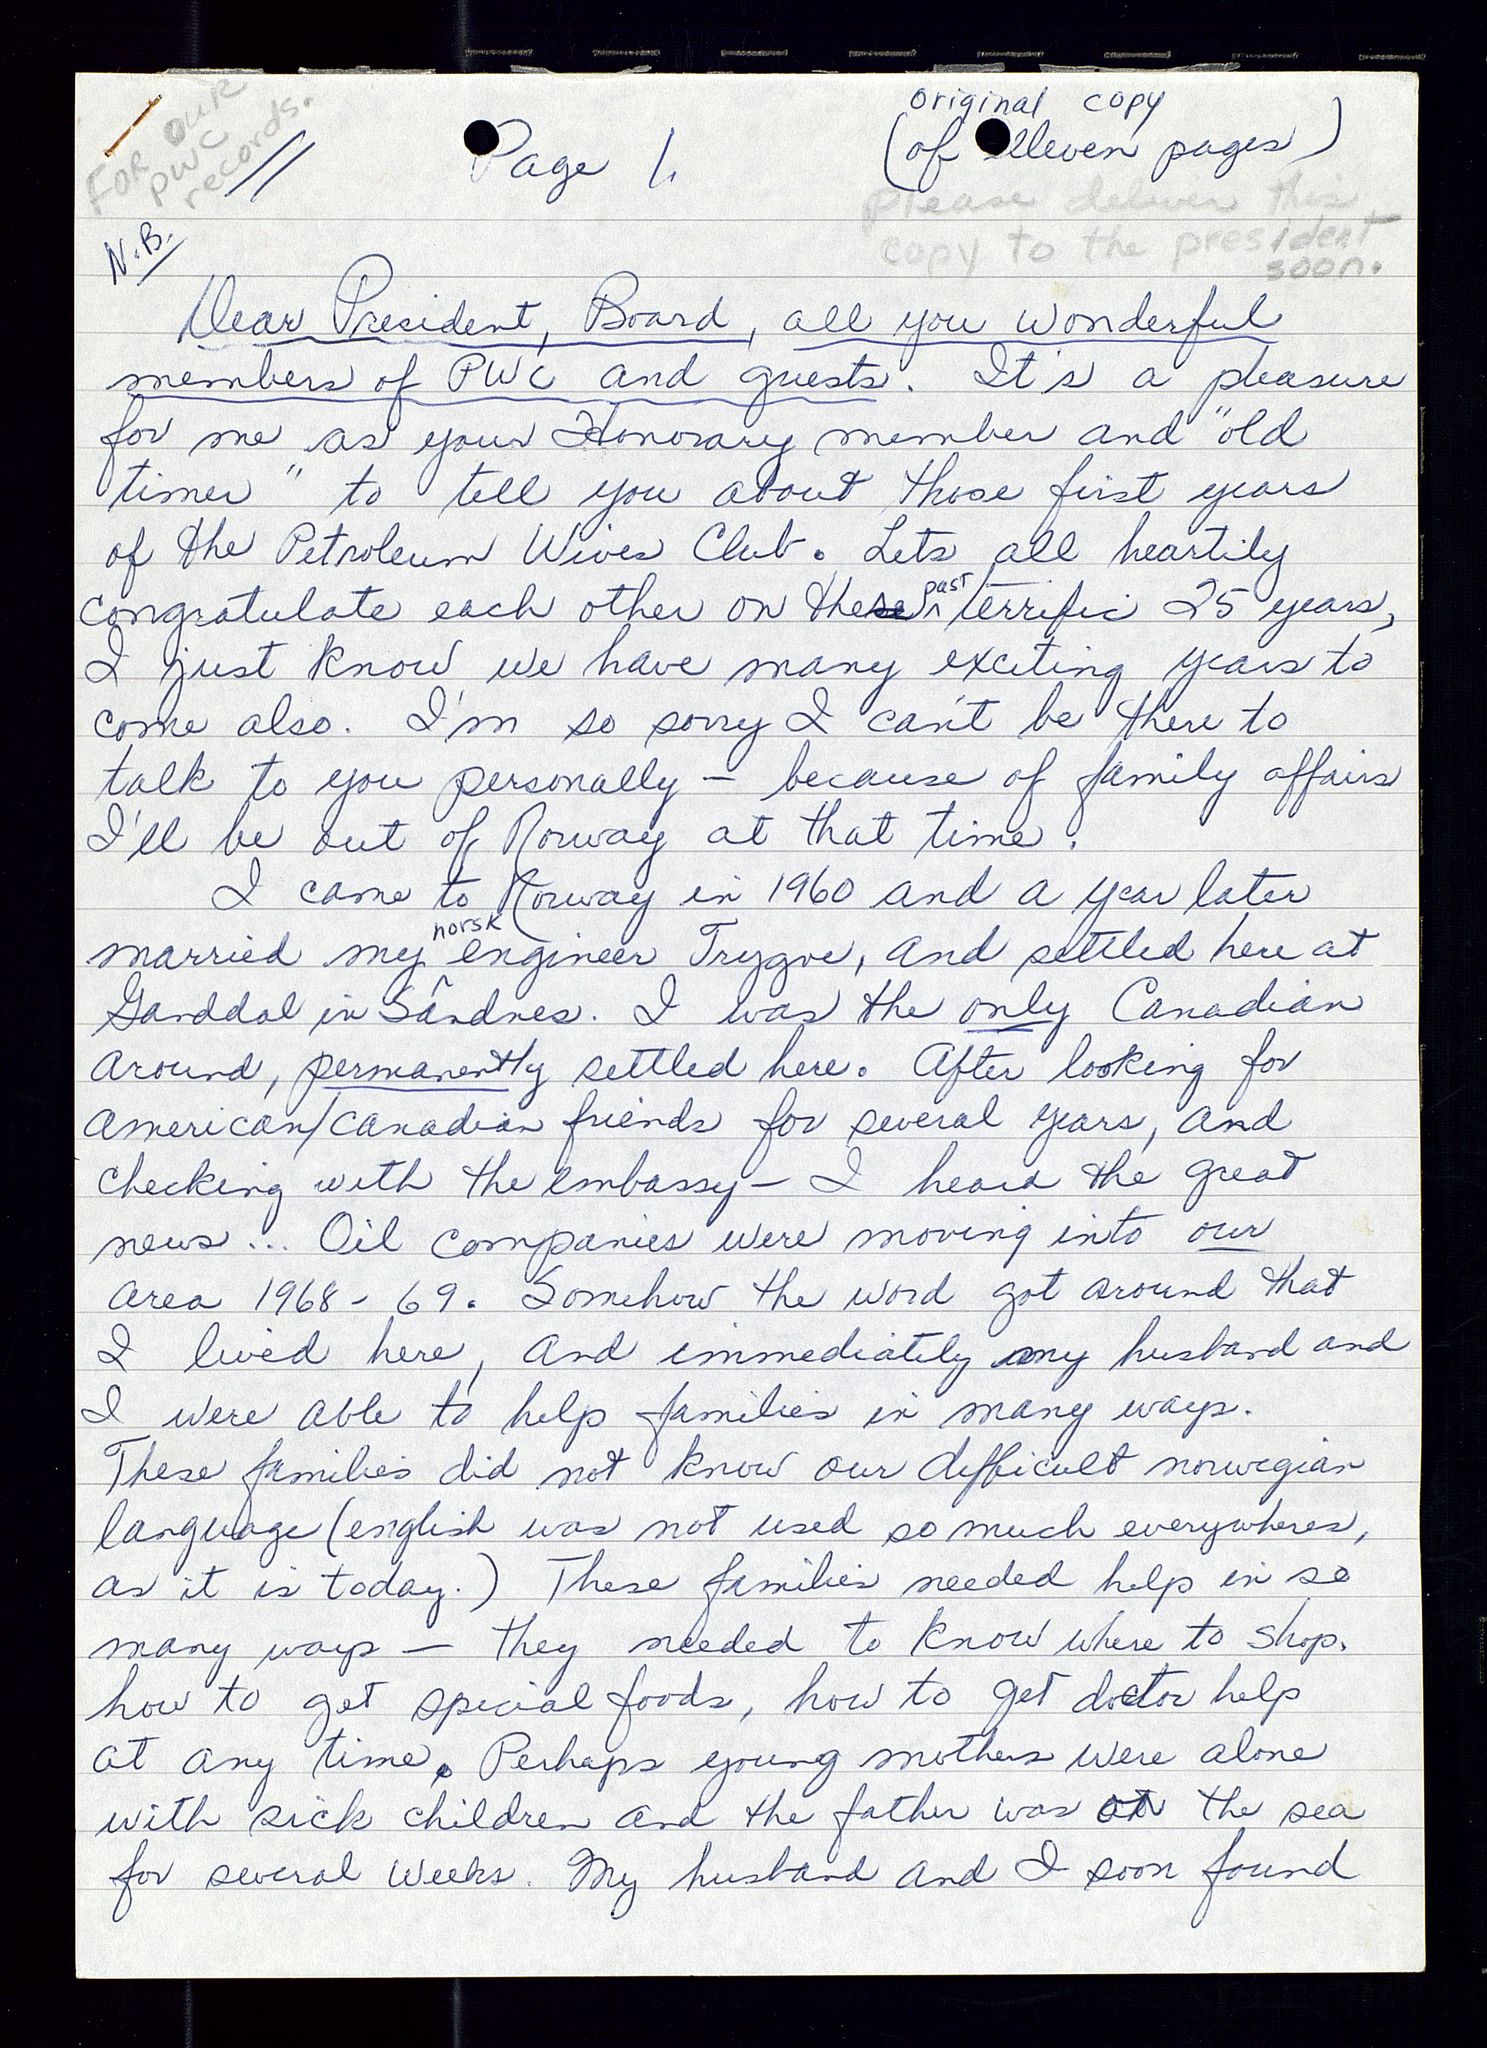 For our
PWC
records.
Page 1.
original copy
(of eleven pages)
Please deliver this
copy to the president
soon.
N.B.
Dear President, Board, all you wonderful
members of PWC and guests. It's a pleasure
for me as your Honorary member and "old
timer" to tell you about those first years
of the Petroleum Wives Club. Lets all heartily
congratulate each other on these past terrific 25 years,
I just know we have many exciting years to
come also. I'm so sorry I can't be there to
talk to you personally – because of family affairs
I'll be out of Norway at that time.
I came to Norway in 1960 and a year later
married my norsk engineer Trygve, and settled here at
Ganddal in Sandnes. I was the only Canadian
around, permanently settled here. After looking for
American/Canadian friends for several years, and
checking with the embassy – I heard the great
news... Oil companies were moving into our
area 1968-69. Somehow the word got around that
I lived here, and immediately my husband and
I were able to help families in many ways.
These families did not know our difficult norwegian
language (english was not used so much everywheres,
as it is today.) These families needed help in so
many ways – they needed to know where to shop.
how to get special foods, how to get doctor help
at any time. Perhaps young mothers were alone
with sick children and the father was at the sea
for several weeks. My husband and I soon found